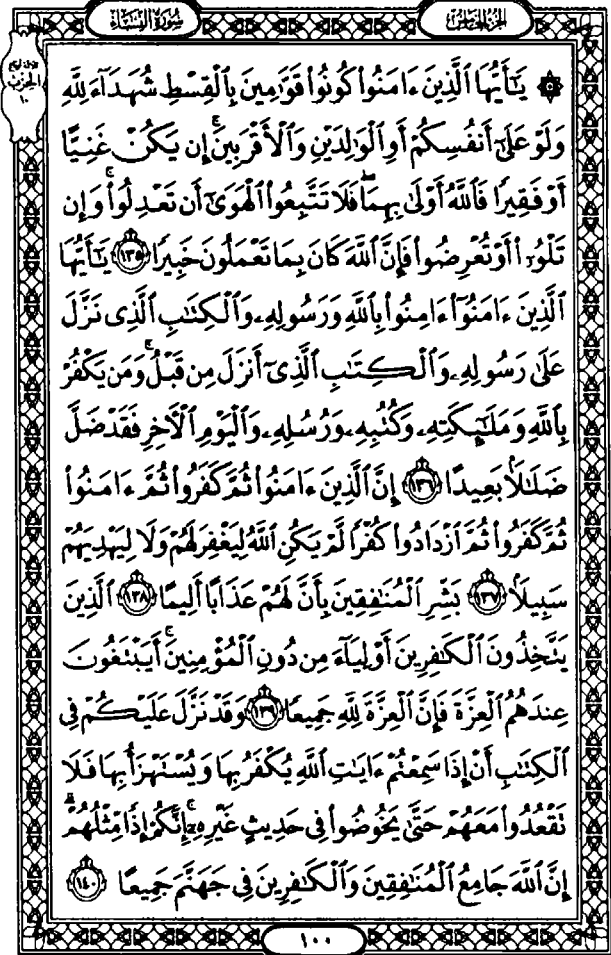 الجزء الخامس
سورة النساء
الحزب
١٠
۞ يَـٰٓأَيُّهَا ٱلَّذِينَ ءَامَنُوا۟ كُونُوا۟ قَوَّٰمِينَ بِٱلْقِسْطِ شُهَدَآءَ لِلَّهِ
وَلَوْ عَلَىٰٓ أَنفُسِكُمْ أَوِ ٱلْوَٰلِدَيْنِ وَٱلْأَقْرَبِينَ ۚ إِن يَكُنْ غَنِيًّا
أَوْ فَقِيرًا فَٱللَّهُ أَوْلَىٰ بِهِمَا ۖ فَلَا تَتَّبِعُوا۟ ٱلْهَوَىٰٓ أَن تَعْدِلُوا۟ ۚ وَإِن
تَلْوُۥٓا۟ أَوْ تُعْرِضُوا۟ فَإِنَّ ٱللَّهَ كَانَ بِمَا تَعْمَلُونَ خَبِيرًا ١٣٥ يَـٰٓأَيُّهَا
ٱلَّذِينَ ءَامَنُوٓا۟ ءَامِنُوا۟ بِٱللَّهِ وَرَسُولِهِۦ وَٱلْكِتَـٰبِ ٱلَّذِى نَزَّلَ
عَلَىٰ رَسُولِهِۦ وَٱلْكِتَـٰبِ ٱلَّذِىٓ أَنزَلَ مِن قَبْلُ ۚ وَمَن يَكْفُرْ
بِٱللَّهِ وَمَلَـٰٓئِكَتِهِۦ وَكُتُبِهِۦ وَرُسُلِهِۦ وَٱلْيَوْمِ ٱلْـَٔاخِرِ فَقَدْ ضَلَّ
ضَلَـٰلًۢا بَعِيدًا ١٣٦ إِنَّ ٱلَّذِينَ ءَامَنُوا۟ ثُمَّ كَفَرُوا۟ ثُمَّ ءَامَنُوا۟
ثُمَّ كَفَرُوا۟ ثُمَّ ٱزْدَادُوا۟ كُفْرًا لَّمْ يَكُنِ ٱللَّهُ لِيَغْفِرَ لَهُمْ وَلَا لِيَهْدِيَهُمْ
سَبِيلًۢا ١٣٧ بَشِّرِ ٱلْمُنَـٰفِقِينَ بِأَنَّ لَهُمْ عَذَابًا أَلِيمًا ١٣٨ ٱلَّذِينَ
يَتَّخِذُونَ ٱلْكَـٰفِرِينَ أَوْلِيَآءَ مِن دُونِ ٱلْمُؤْمِنِينَ ۚ أَيَبْتَغُونَ
عِندَهُمُ ٱلْعِزَّةَ فَإِنَّ ٱلْعِزَّةَ لِلَّهِ جَمِيعًا ١٣٩ وَقَدْ نَزَّلَ عَلَيْكُمْ فِى
ٱلْكِتَـٰبِ أَنْ إِذَا سَمِعْتُمْ ءَايَـٰتِ ٱللَّهِ يُكْفَرُ بِهَا وَيُسْتَهْزَأُ بِهَا فَلَا
تَقْعُدُوا۟ مَعَهُمْ حَتَّىٰ يَخُوضُوا۟ فِى حَدِيثٍ غَيْرِهِۦٓ ۚ إِنَّكُمْ إِذًا مِّثْلُهُمْ ۗ
إِنَّ ٱللَّهَ جَامِعُ ٱلْمُنَـٰفِقِينَ وَٱلْكَـٰفِرِينَ فِى جَهَنَّمَ جَمِيعًا ١٤٠
١٠٠